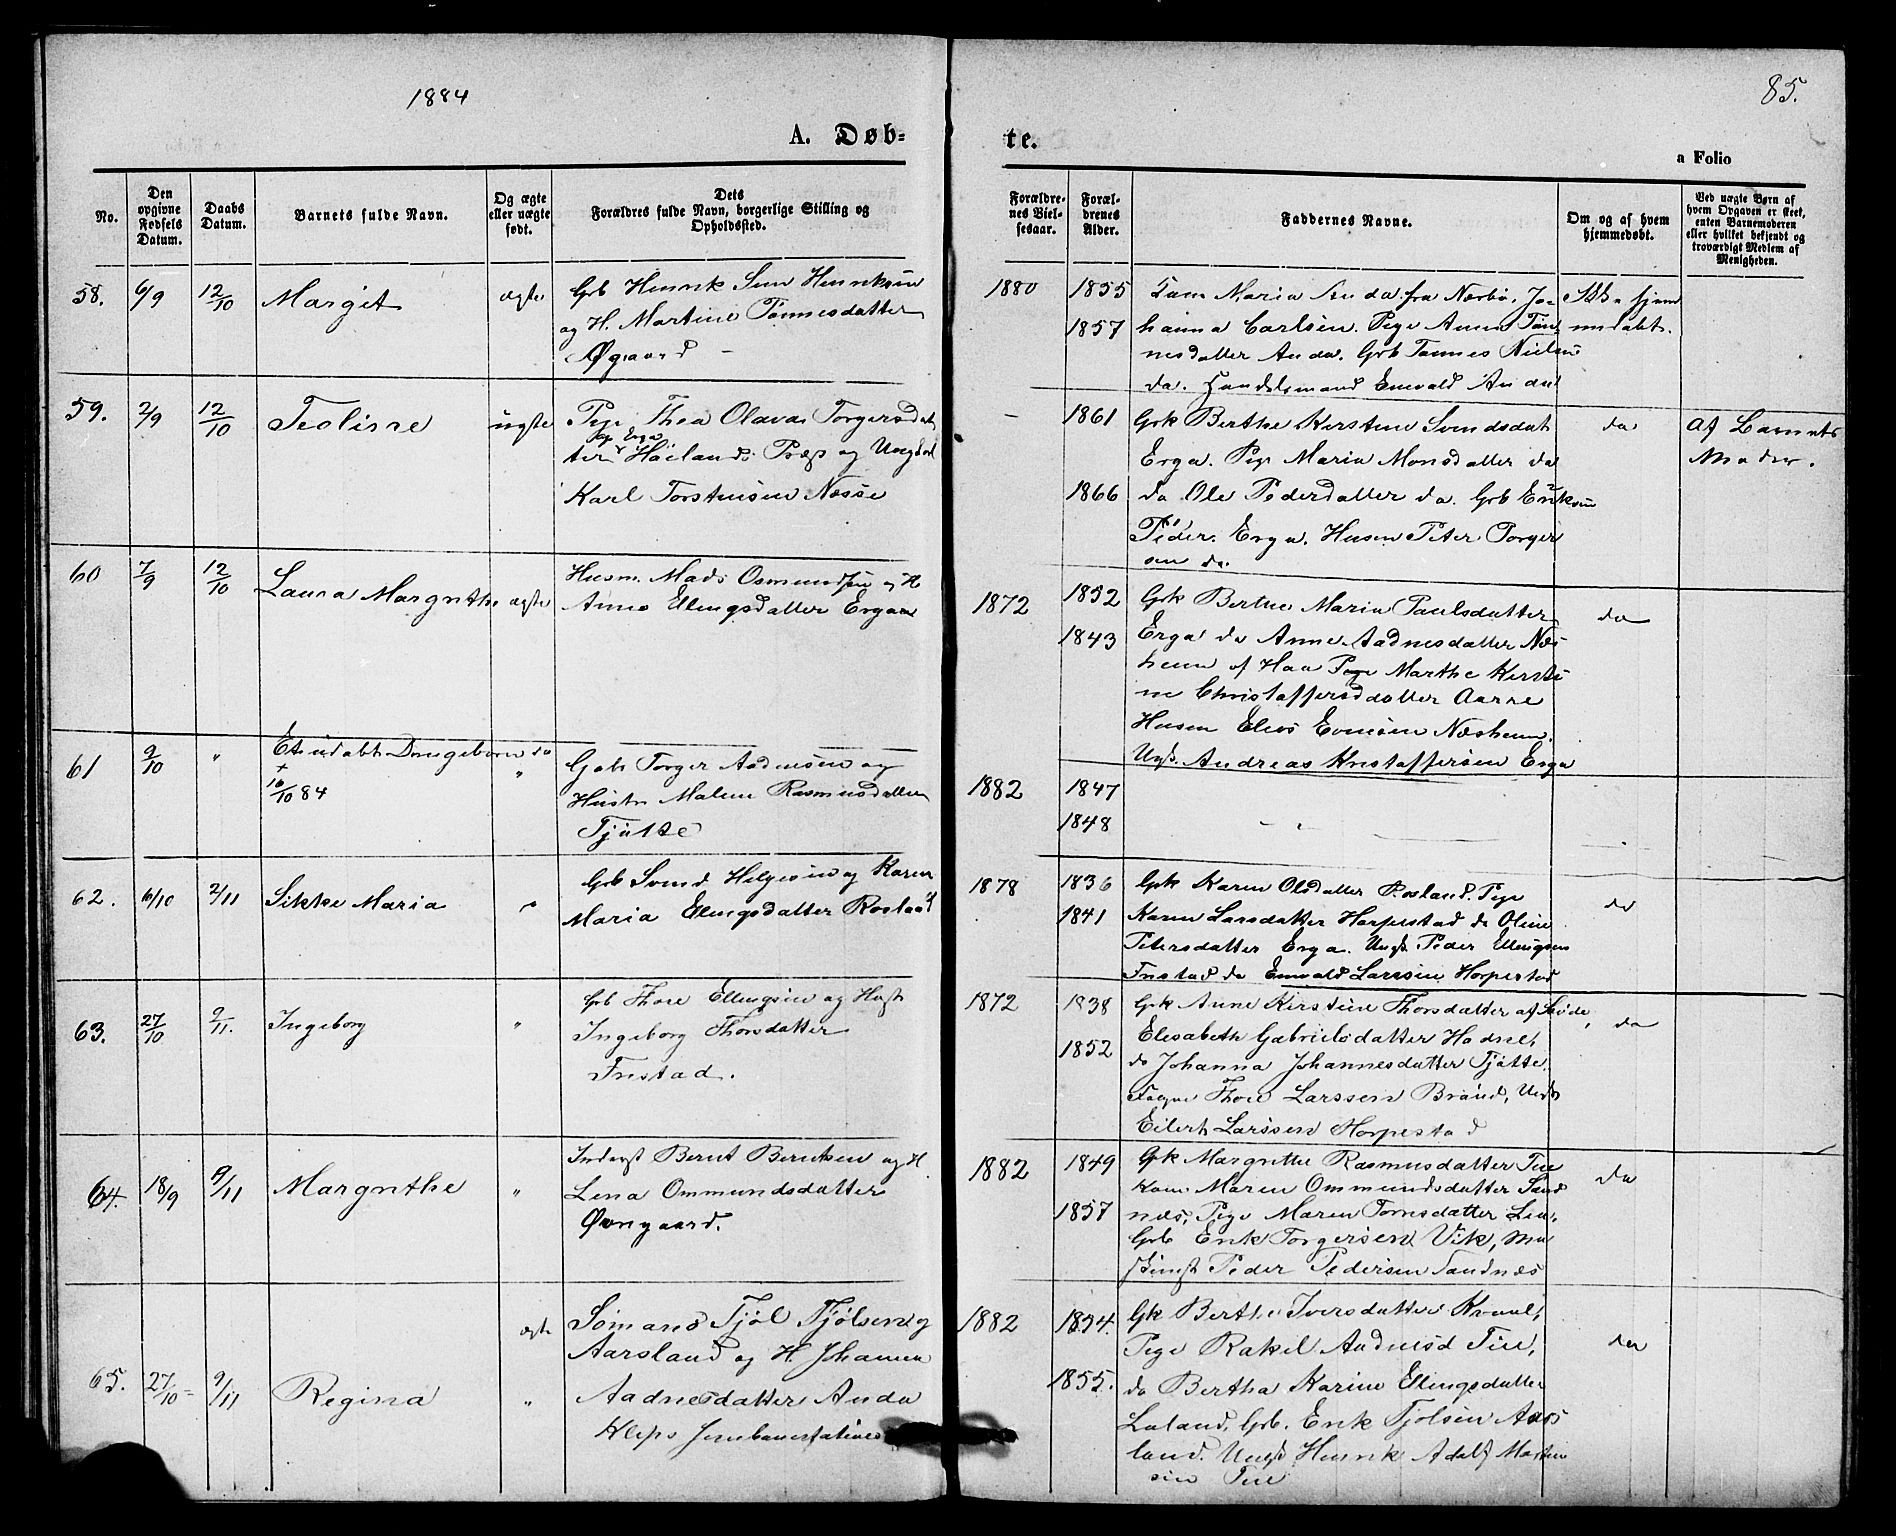 1884
85.
A. Døb-
te.
a Folio
No.
Den
opgivne
Fødsels
Datum.
Daabs
Datum.
Barnets fulde Navn.
Og ægte
eller uægte
født.
Dets
Forældres fulde Navn, borgerlige Stilling og
Opholdssted.
Forældre-
nes Viel-
sesaar.
Foræl-
drenes
Alder.
Faddernes Navne.
Om og af hvem
hjemmedøbt.
Ved uægte Børn af
hvem Opgaven er skeet,
enten Barnemoderen
eller hvilket bekjendt og
troværdigt Medlem af
Menigheden.
58. 6/9 12/10 Margit ægte Gb Henrik Henriksen
og H. Martine Tønnesdatter
Øgaard -
1880 1855 Maria Anda fra Nærbø, Jo- Ikke hjem
1857 hanna Carlsen. Pige Anna Tøn- medøbt.
nesdatter Anda. Gb Tønnes Nielsen
da. Handelsmand Enevald Anda
59. 2/9 12/10 Teoline uægte Pige Thea Olava Torgersdat
ter Høiland og Ungkarl
Karl Torstensen Næsse
- 1861 Gk Berthe Kirstine Svendsdat do Af Barnets
Erga. Pige Maria Monsdatter do Moder.
1866 do Ole Pedersdatter do. Gb Eriksen
Peder Erga. Husm Peter Torger
sen do.
60 7/9 12/10 Laura Margrethe ægte Husm. Mads Osmundsen og H
Anne Ellingsdatter Erga
1872 1832 Gk Berthe Maria Paulsdatter do
1843 Erga do Anne Aadnesdatter Næs
heim af Haa Pige Marthe Kirsti
ne Christoffersdatter Aarre
Husm Elias Evensen Næsheim.
Ungk. Andreas Kristoffersen Erga
61 9/10 " Et udøbt Drengebarn do
+
10/10 84
" Gb Torger Aadnesen og
Hustr Malene Rasmusdatter
Tjøtte
1882 1847
1848
62. 6/10 2/11 Sikke Maria " Gb Svend Helgesen og Karen
Maria Ellingsdatter Rosland
1878 1836 Gk Karen Olsdatter Rosland. Pige do
1841 Karen Larsdatter Horpestad do Oline
Petersdatter Erga. Ungk Peder Ellingsen
Fristad do Enevald Larssen Horpestad
63. 27/10 9/11. Ingeborg " Gb Thore Ellingsen og Hustr
Ingeborg Thorsdatter
Fristad.
1872 1838 Gk Anne Kirstine Thorsdatter af do
1852 Elisabeth Gabrielsdatter
do Johanna Johannesdatter Tjøtte.
Thore Larssen Braud, Ungk
Eilert Larssen Horpestad
64. 18/9 9/11 Margrethe " Inderst Bernt Berntsen og H.
Lena Ommundsdatter
Øvregaard.
1882 1849 Gk Margrethe Rasmusdatter Tue do
Kone Maren Ommundsdatter Sand
1857 næs, Pige Maren Tørresdatter
Gb Erik Torgersen Vik, Ma
skinist Peder Pedersen Sandnæs
65. 27/10 - 9/11 Regina ægte
" Sømand Tjøl Tjølsen
Aarsland og H. Johanne
Aadnesdatter Anda
Klepp Jernbanestation
1882 1854. Gk Berthe Iversdatter do
Pige Rakel Aadnesd Tue,
1855. do Bertha Karine Ellingsdatter
Laland, Gb. Erik Tjølsen Aars
land. Ungk Henrik Adolf Morten
sen Tue